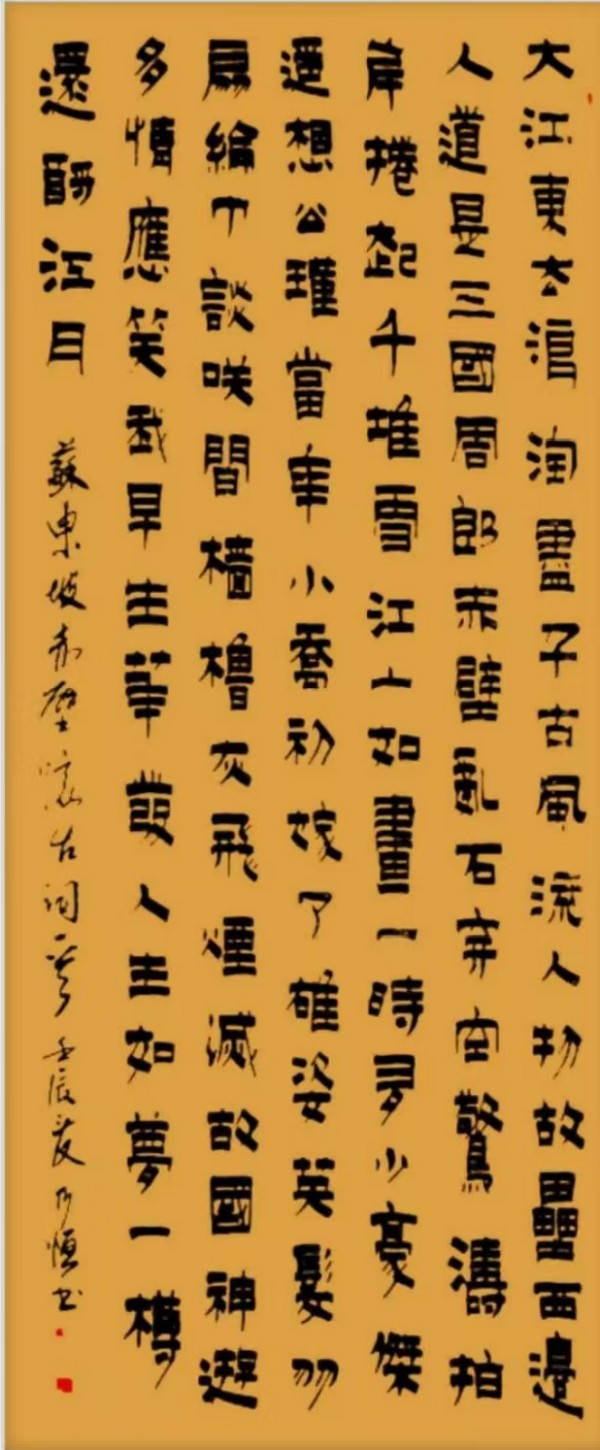 大江東去浪淘盡千古風流人物故壘西邊
人道是三國周郎赤壁亂石穿空驚濤拍
岸捲起千堆雪江山如畫一時多少豪傑
遙想公瑾當年小喬初嫁了雄姿英髮羽
扇綸巾談咲間檣櫓灰飛煙滅故國神遊
多情應笑我早生華發人生如夢一樽
還酹江月
蘇東坡赤壁懷古詞一首壬辰夏乃恒书